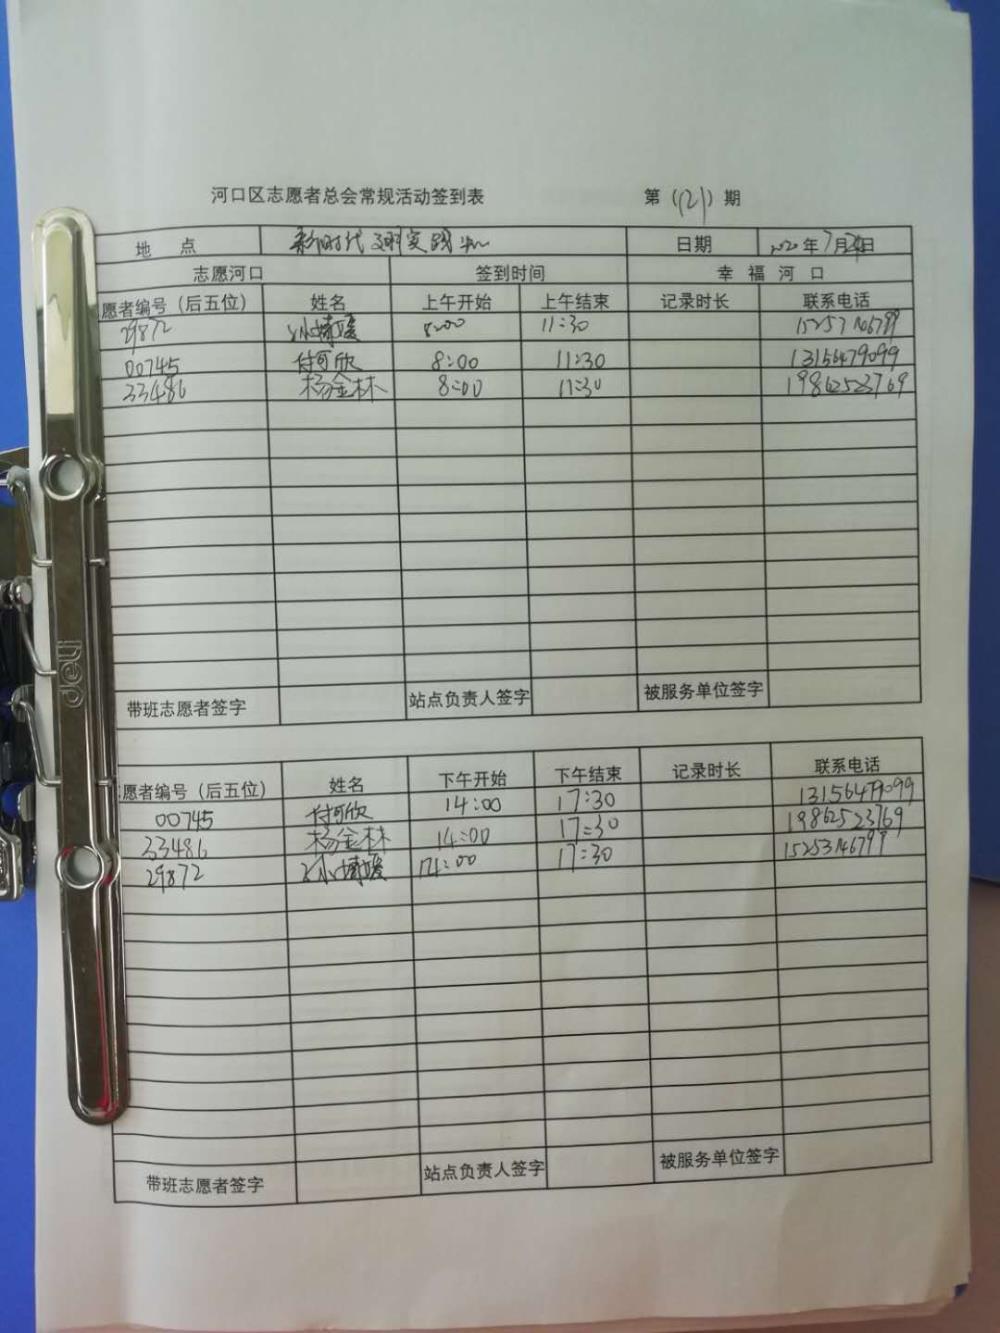 河口区志愿者总会常规活动签到表 第(121)期
地 点 新时代文明实践中心 日期 2020年7月日
志愿河口 签到时间 幸 福 河 口
愿者编号（后五位） 姓名 上午开始 上午结束 记录时长 联系电话
29872 8:00 11:30
00745 付可欣 8:00 11:30 13156479099
33486 杨金林 8:00 11:30 19862523769
带班志愿者签字 站点负责人签字 被服务单位签字
愿者编号（后五位） 姓名 下午开始 下午结束 记录时长 联系电话
00745 付可欣 14:00 17:30 13156479099
33486 杨金林 14:00 17:30 19862523769
29872 14:00 17:30
带班志愿者签字 站点负责人签字 被服务单位签字
deli